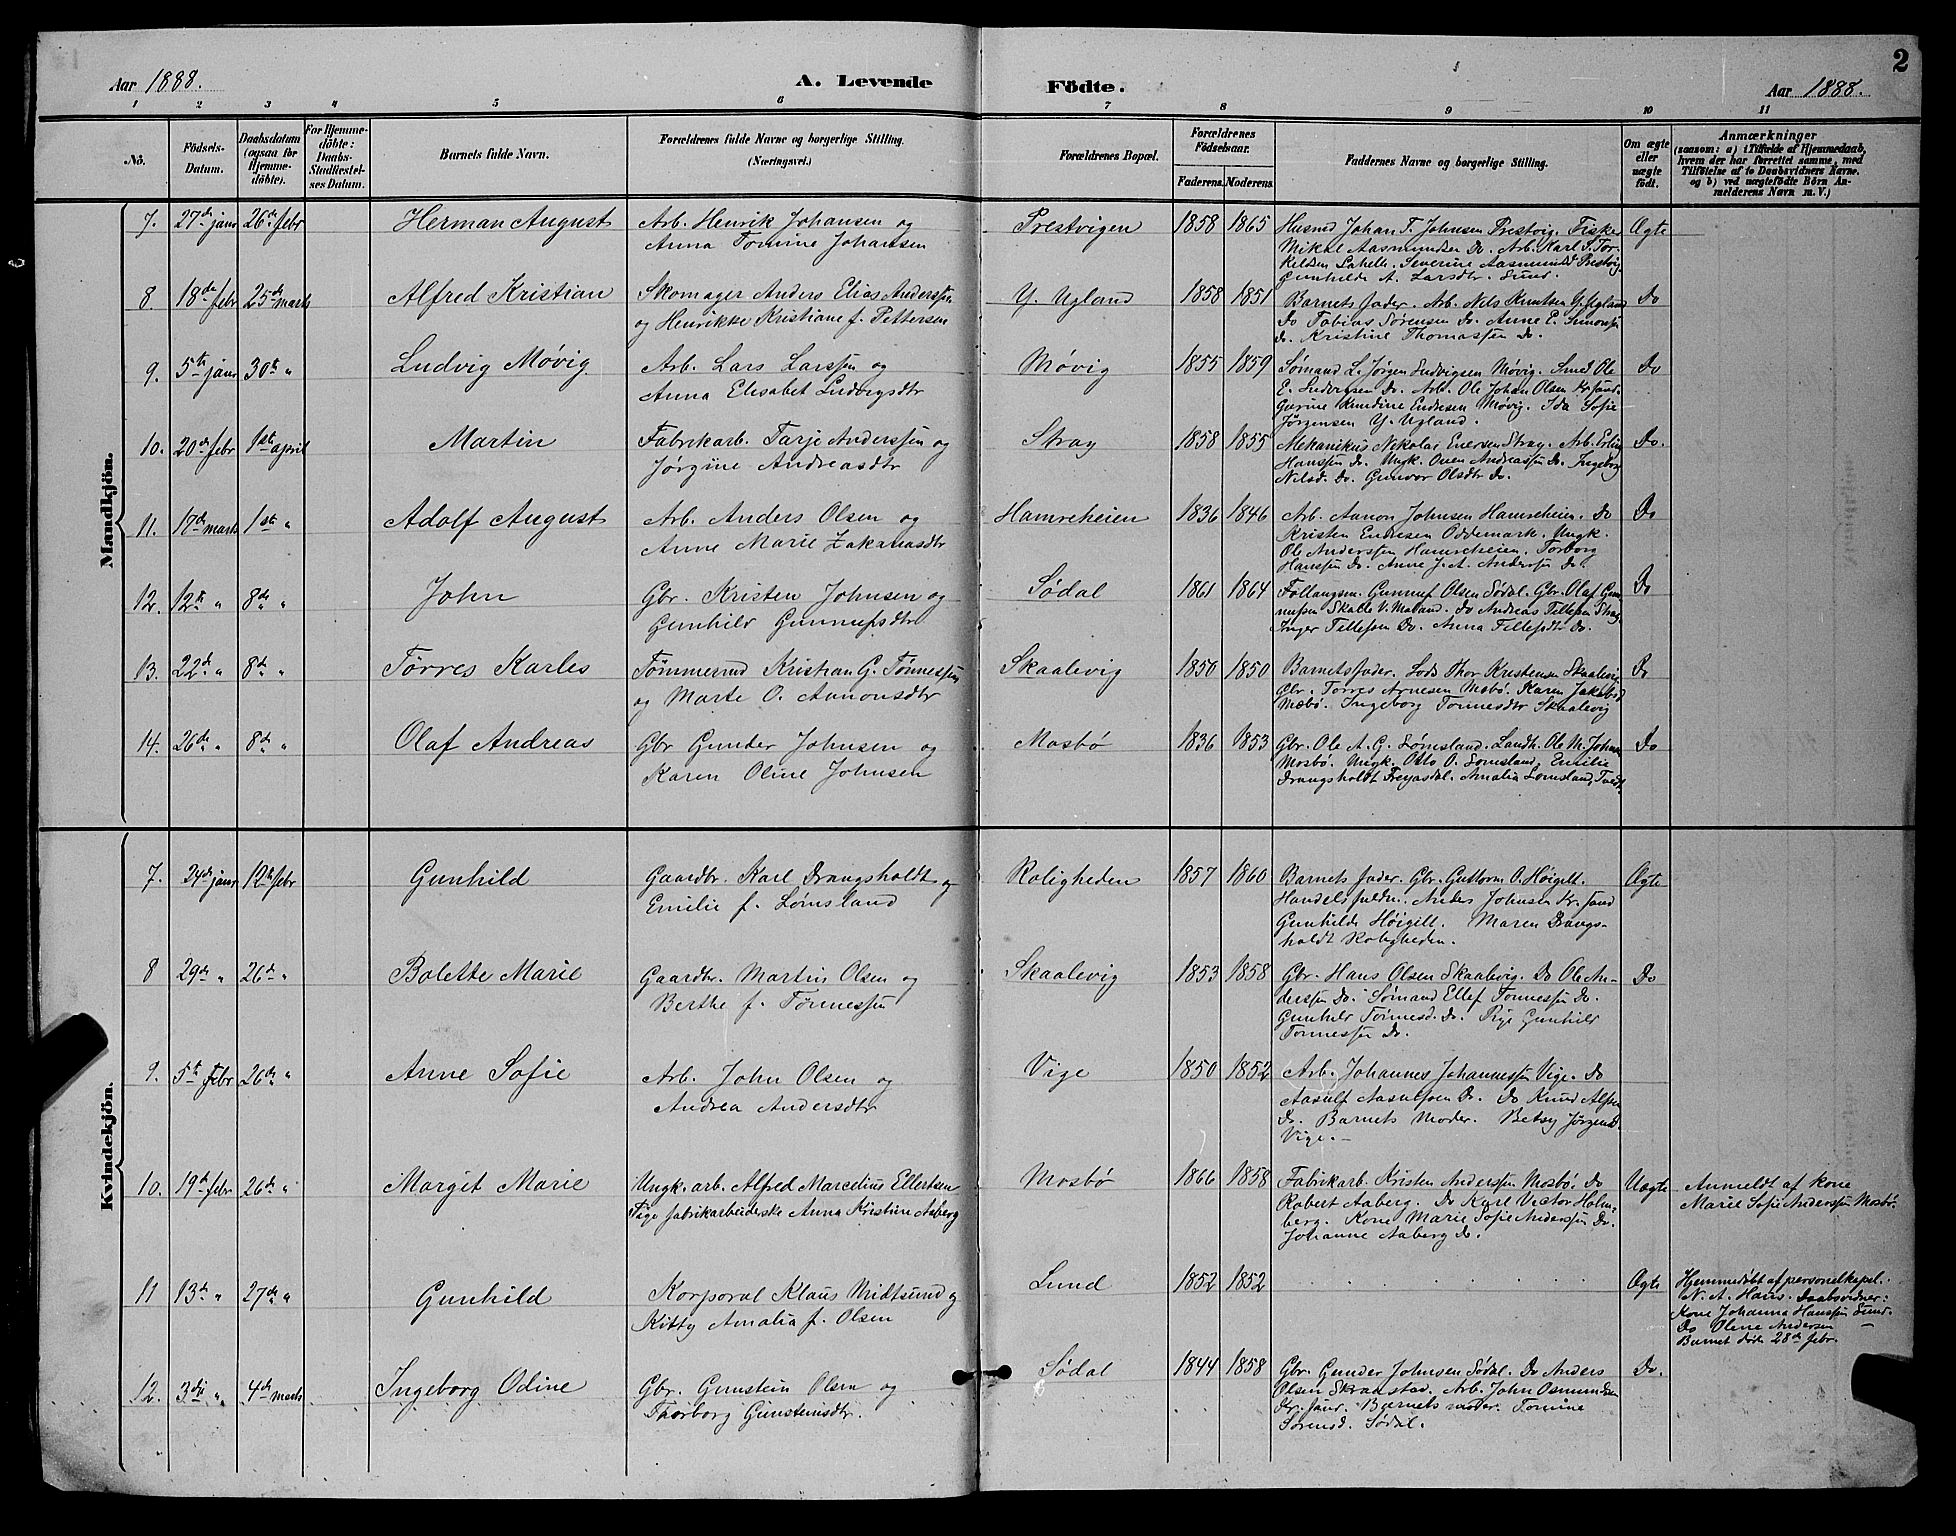 2
Aar 1888.
A. Levende
Födte.
Aar 1888.
1 2 3 4 5 6 7 8 9 10 11
No.
Födsels-Datum.
Daabsdatum (ogsaa for Hjemme-döbte).
For Hjemme-döbte: Daabs-Stadfæstel-ses Datum.
Barnets fulde Navn.
Forældrenes fulde Navne og borgerlige Stilling.
(Næringsvei.)
Forældrenes Bopæl.
Forældrenes Födselsaar.
Faderens. Moderens.
Faddernes Navne og borgerlige Stilling.
Om ægte eller uægte födt.
Anmærkninger
(saasom: a) i Tilfælde af Hjemmedaab, hvem der har forrettet samme, med Tilföielse af to Daabsvidners Navne, og b) ved uægtefödte Börn Anmelderens Navn m. V.)
Mandkjön.
7. 27de janr 26de febr Herman August Arb. Henrik Johansen og Prestvigen 1858 1865 Husmd Johan T. Johnsen Prestvig. Fisker Ægte
Anna Tomine Johansen Mikal Aasmundsen Do. Arb. Karl S. Tor-
kildsen Lahelle. Severine Aasmundsd Prestvig
Gunhilde A. Larsdtr. Lund.
8. 18de febr 25de marts Alfred Kristian Skomager Anders Elias Anderssen Y. Ugland 1858 1851 Barnets fader. Arb. Nils Knutsen Y. Ugland Do
og Henrikke Kristiane f. Pettersen Do Tobias Sørensen Do. Anne E. Simonsen
do. Kristine Thomassen Do.
9. 5te janr 30te " Ludvig Møvig Arb. Lars Larssen og Møvig 1855 1859 Sømand L. Jørgen Ludvigsen Møvig. Smed Ole Do
Anna Elisabet Ludvigsdtr E. Ludvigsen Do. Arb. Ole Johan Olsen Kr.sand.
Gurine Kundine Endresen Møvig. Ida Sofie
Jørgensen Y. Ugland.
10. 20de febr 1ste april Martin Fabrikarb. Tarje Anderssen og Stray 1858 1855 Mekanikus Nikolai Enersen Stray. Arb. Erling Do.
Jørgine Andreasdtr Hanssen Do. Ungk. Ouen Andreassen Do. Ingeborg
Nilsd. Do. Gunvor Olsdtr Do.
11. 17de marts 1ste " Adolf August Arb. Anders Olsen og Hamreheien 1836 1846 Arb. Aanon Johnsen Hamreheien. Do Do
Anne Marie Zakariasdtr Kristen Endresen Oddemark. Ungk.
Ole Anderssen Hamreheien. Torborg
Hanssen Do. Anne J. A. Anderssen Do.
12. 12te " 8de " John Gbr. Kristen Johnsen og Sødal 1861 1864 Føllangsm. Gunnuf Olsen Sødal. Gbr. Olaf Gun- Do
Gunhild Gunnufsdtr nufsen Skaale V. Moland. Do Andreas Tellefsen Stray.
Inger Tellefsen Do. Anna Tellefsdtr Do.
13. 22de " 8de " Tørres Karles Tømmermd Kristian G. Tønnessen Skaalevig 1850 1850 Barnets fader. Lods Thor Kristensen Skaalevig Do
og Marte O. Aanonsdtr Gbr. Torres Arnesen Mosbø. Karen Jakobsd
Mæbø. Ingeborg Tønnesdtr Skaalevig
14. 26de " 8de " Olaf Andreas Gbr Gunder Johnsen og Mosbø 1836 1853 Gbr. Ole A. G. Lømsland. Landh. Ole M. Johnsen Do
Karen Oline Johnsen Mosbø. Ungk. Otto O. Lomsland, Emilie
Drangsholdt Freyasdal. Amalia Lomsland, Tveit.
Kvindekjön.
7. 24de janr 12te febr Gunhild Gaardbr. Karl Drangsholdt og Roligheden 1857 1860 Barnets fader. Gbr. Guttorm O. Høigilt. Ægte
Emilie f. Lømsland Handelsfuldm. Anders Johnsen Kr.sand
Gunhilde Høigilt. Maren Drangs-
holdt Roligheden.
8 29de " 26de " Bolette Marie Gaardbr. Martin Olsen og Skaalevig 1853 1858 Gbr. Hans Olsen Skaalevig. Do Ole An- Do
Berthe f. Tønnessen derssen Do. Sømand Ellef Tønnessen Do.
Gunhild Tønnesd. Do. Pige Gunhild
Tønnessen Do.
9. 5te febr 26de " Anne Sofie Arb. John Olsen og Vige 1850 1852 Arb. Johannes Johannessen Vige. Do
Andrea Andersdtr Aasulf Aasulfsen Do. Do Knud Alfsen
Do. Barnets Moder. Betsy Jørgensd
Vige.
10. 19de febr 26de " Margit Marie Ungk. arb. Alfred Marcelius Ellertsen Mosbø 1866 1858 Fabrikarb. Kristen Anderssen Mosbø. Do Uægte Anmeldt af kone
Pige fabrikarbeiderske Anna Kristine Aaberg Robert Aaberg. Do Karl Victor Holm- Marie Sofie Anderssen Mosbø.
berg. Kone Marie Sofie Anderssen Do.
Johanne Aaberg Do.
11 13de " 27de " Gunhild Korporal Klaus Midtsund og Lund 1852 1852 Ægte Hjemmedøbt af personelkapel.
Kitty Amalia f. Olsen N. A. Hans. Daabsvidner:
Kone Johanna Hanssen Lund.
Do Oline Andersen
Barnet døde 28de febr.
12. 3die " 4de marts Ingeborg Odine Gbr. Gunstein Olsen og Sødal 1844 1858 Gbr. Gunder Johnsen Sødal. Do Anders Do.
Thorborg Gunsteinsdtr. Olsen Skraastad. Arb. John Osmundsen
Kr.sand. Barnets moder. Tomine
Sørensd. Sødal.